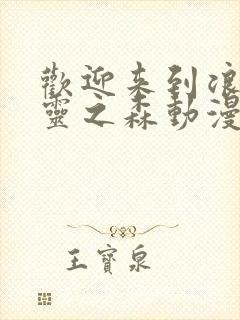 歡迎来到浪
靈之森動漫
王寶泉